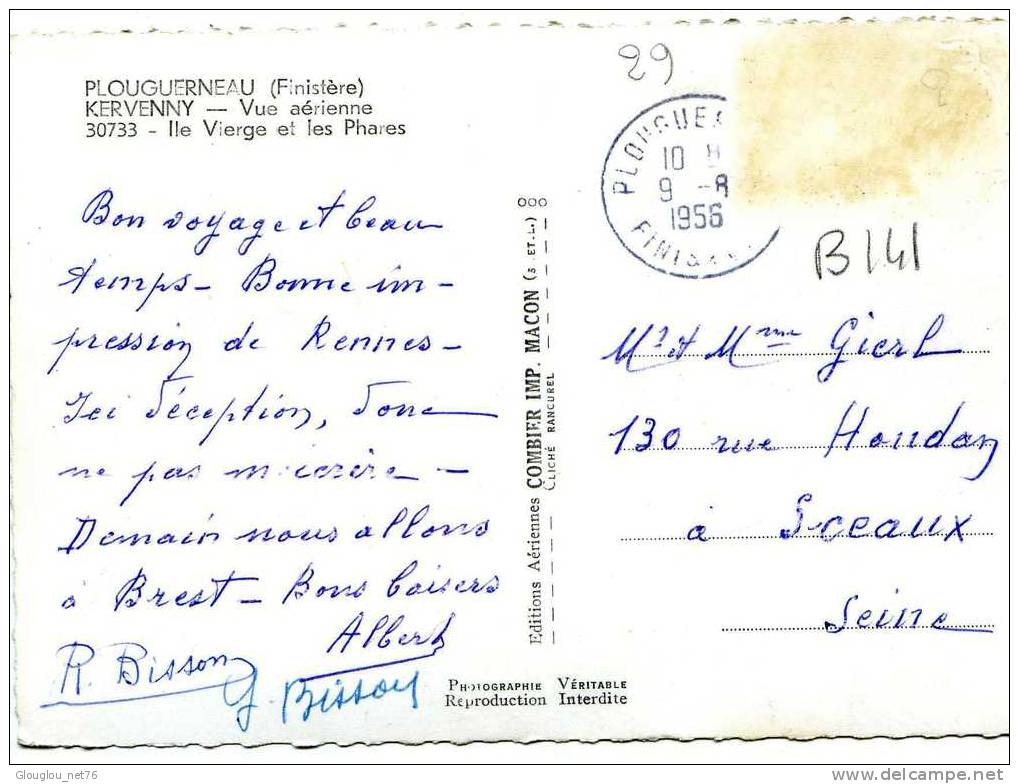 29
PLOUGUERNEAU (Finistère)
KERVENNY — Vue aérienne
30733 - Ile Vierge et les Phares
10 H
9 -8
1956
B141
Bon voyage et beau
temps - Bonne im-
pression de Rennes -
Ici déception, donc
ne pas m'écrire -
Demain nous allons
à Brest - Bons baisers
Albert
R. Bisson
G. Bisson
Editions Aériennes COMBIER IMP. MACON (S. ET L.) OOO
CLICHÉ RANCUREL
Mr et Mme Gierl
130 rue Houdan
à Sceaux
Seine
PHOTOGRAPHIE VÉRITABLE
Reproduction Interdite
Glouglou_net76
www.delcampe.net